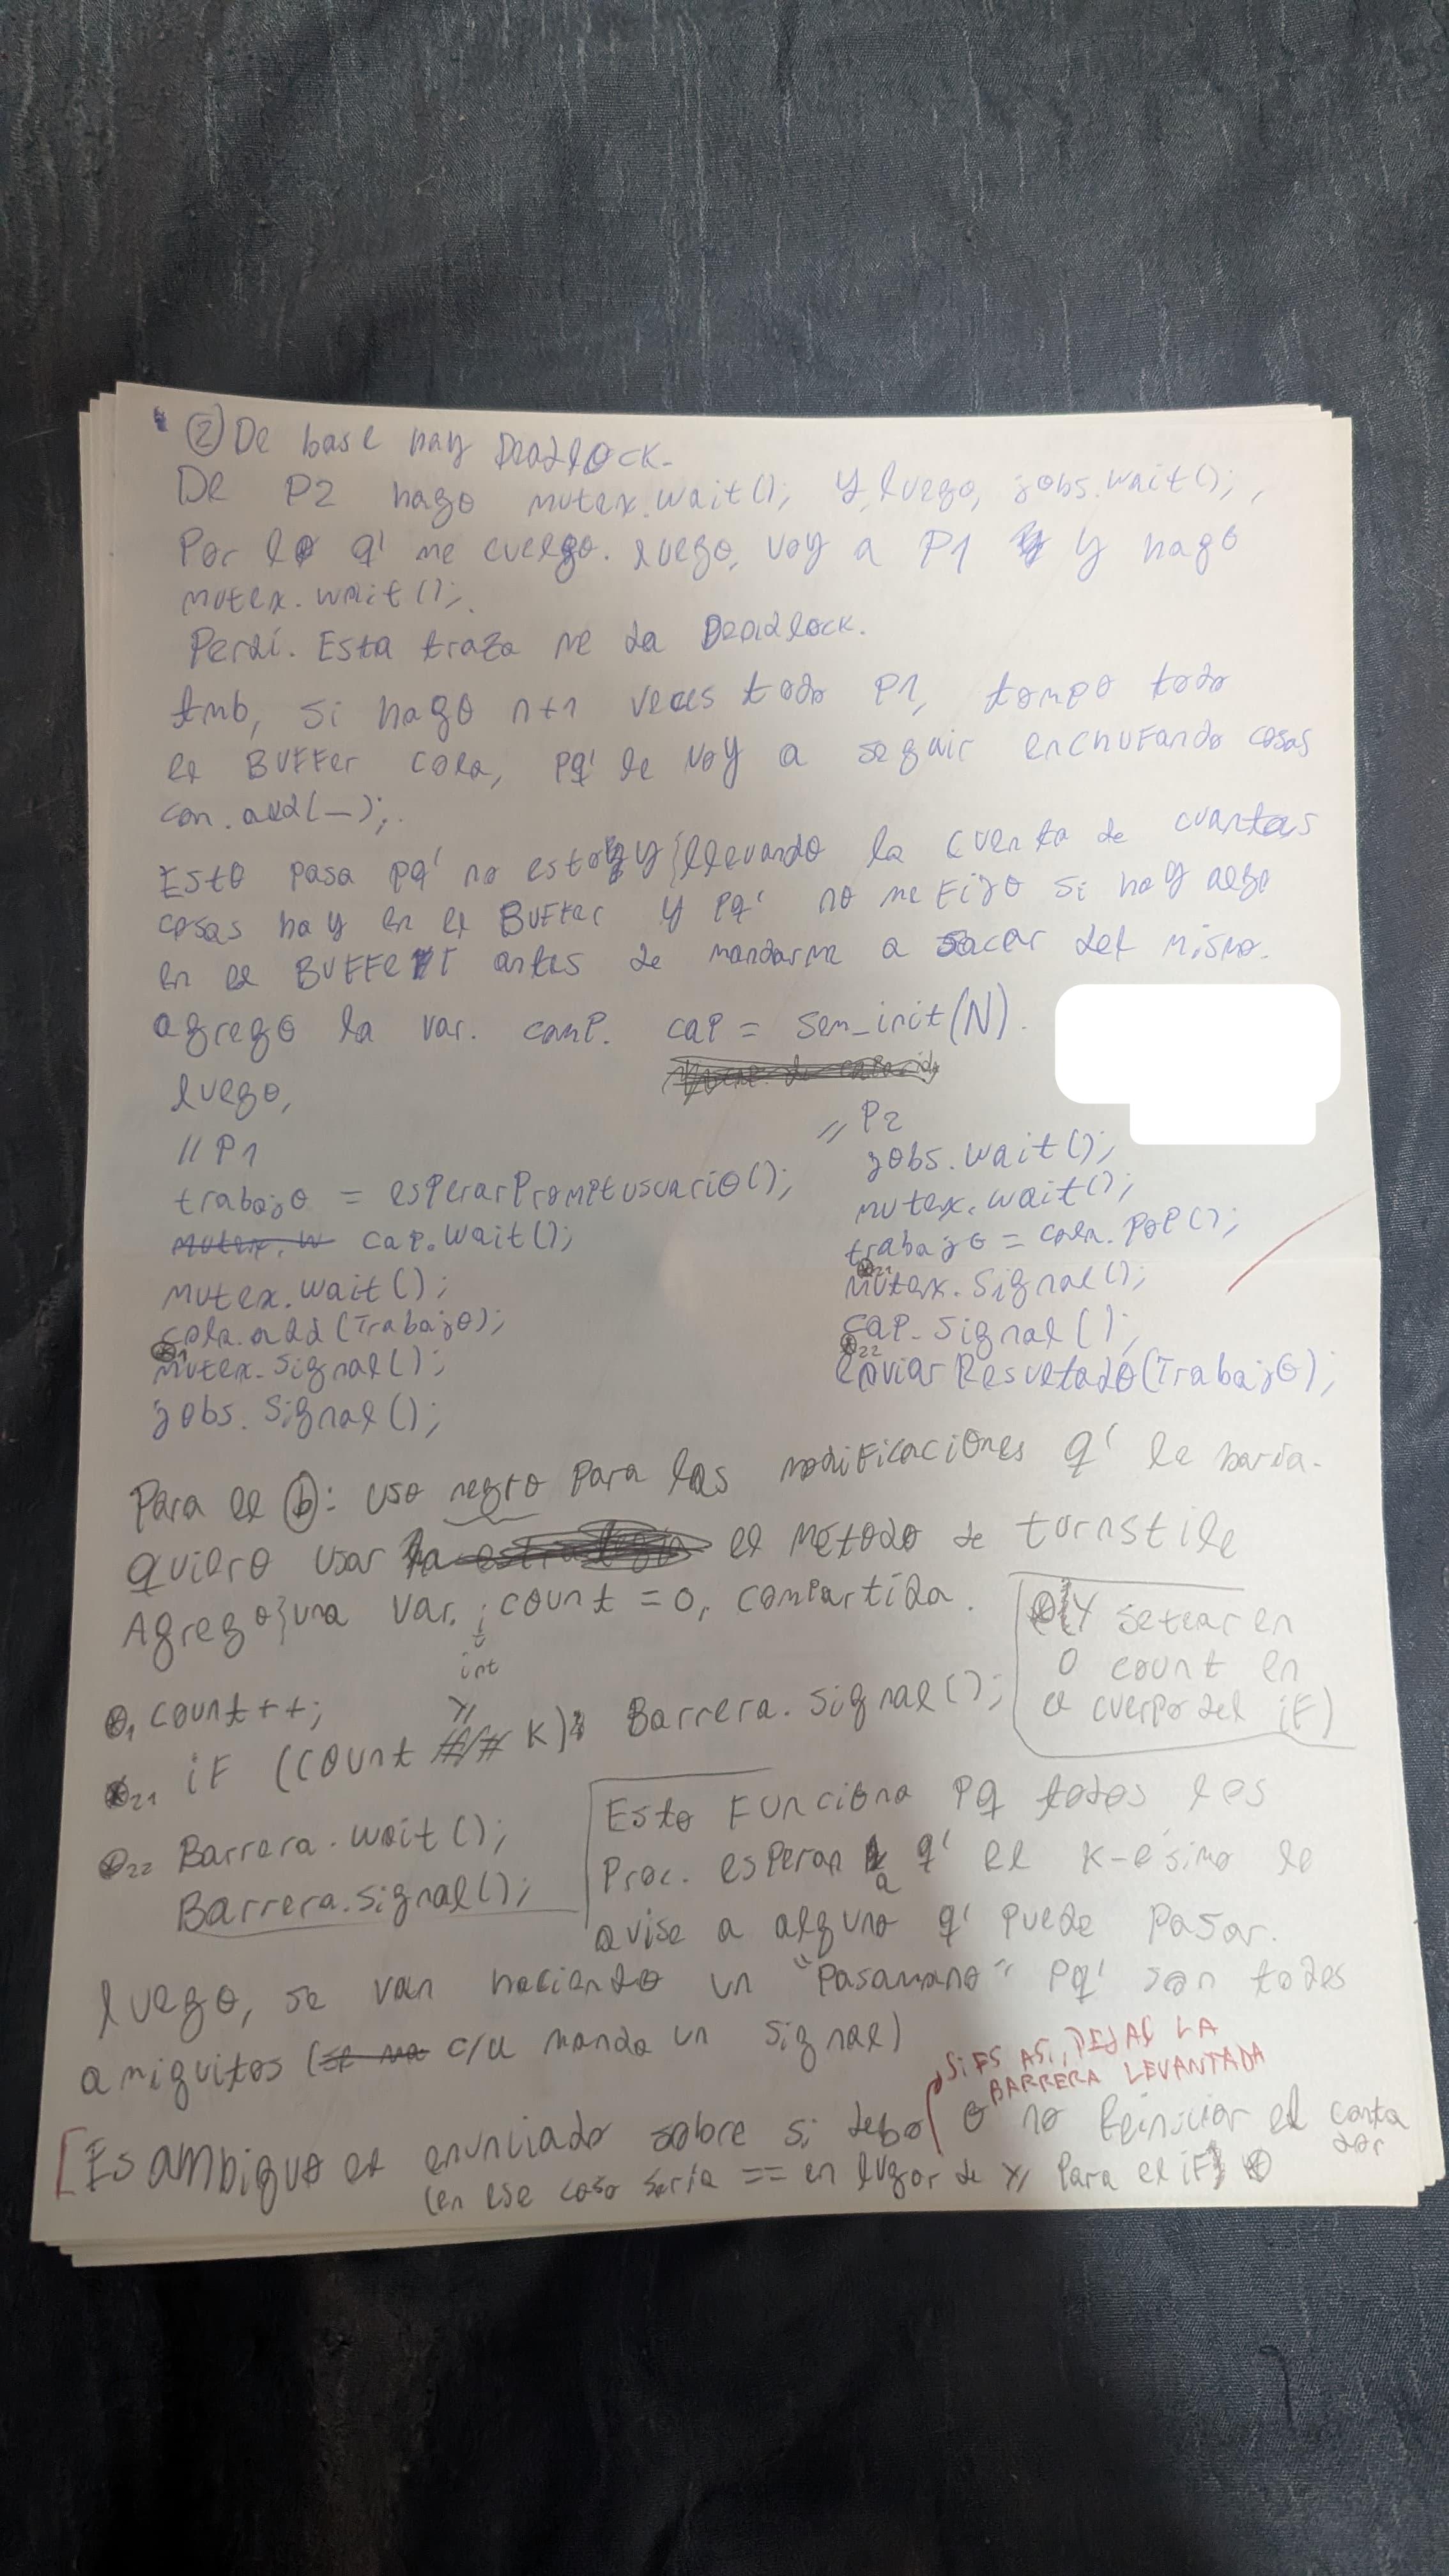 ② De base hay Deadlock.
De P2 hago mutex.wait(); y, luego, jobs.wait();,
Por lo q' me cuelgo. luego, voy a P1 y hago
mutex.wait();.
Perdí. Esta traza me da Deadlock.
tmb, si hago n+1 veces todo P1, rompo todo
el Buffer cola, pq' le voy a seguir enchufando cosas
con .add(_);.
Esto pasa pq' no estoy llevando la cuenta de cuantas
cosas hay en el Buffer y pq' no me fijo si hay algo
en el Buffer antes de mandarme a sacar del mismo.
agrego la var. comp. cap = sem_init(N).
luego,
// P1
trabajo = esperarPromptusuario();
mutex.w cap.wait();
mutex.wait();
cola.add(Trabajo);
⊛1
mutex.signal();
jobs.signal();
// P2
jobs.wait();
mutex.wait();
trabajo = cola.pop();
⊛21
mutex.signal();
cap.signal();
⊛22
enviarResultado(Trabajo);
Para el ⓑ: uso negro para las modificaciones q' le haría.
quiero usar el método de turnstile
Agrego una var. count = 0, compartida.
int
⊛1 count++;
⊛21 if (count >= K) Barrera.signal();
(Y setear en
0 count en
el cuerpo del if)
⊛22 Barrera.wait();
Barrera.signal();
Esto funciona pq todos los
Proc. esperan a q' el k-ésimo le
avise a alguno q' puede pasar.
luego, se van haciendo un "Pasamano" pq' son todos
amiguitos (c/u manda un signal)
SI ES ASI, DEJAS LA
BARRERA LEVANTADA
[Es ambiguo el enunciado sobre si debo o no reiniciar el conta
dor
(en ese caso sería == en lugar de >= para el if) ⊛